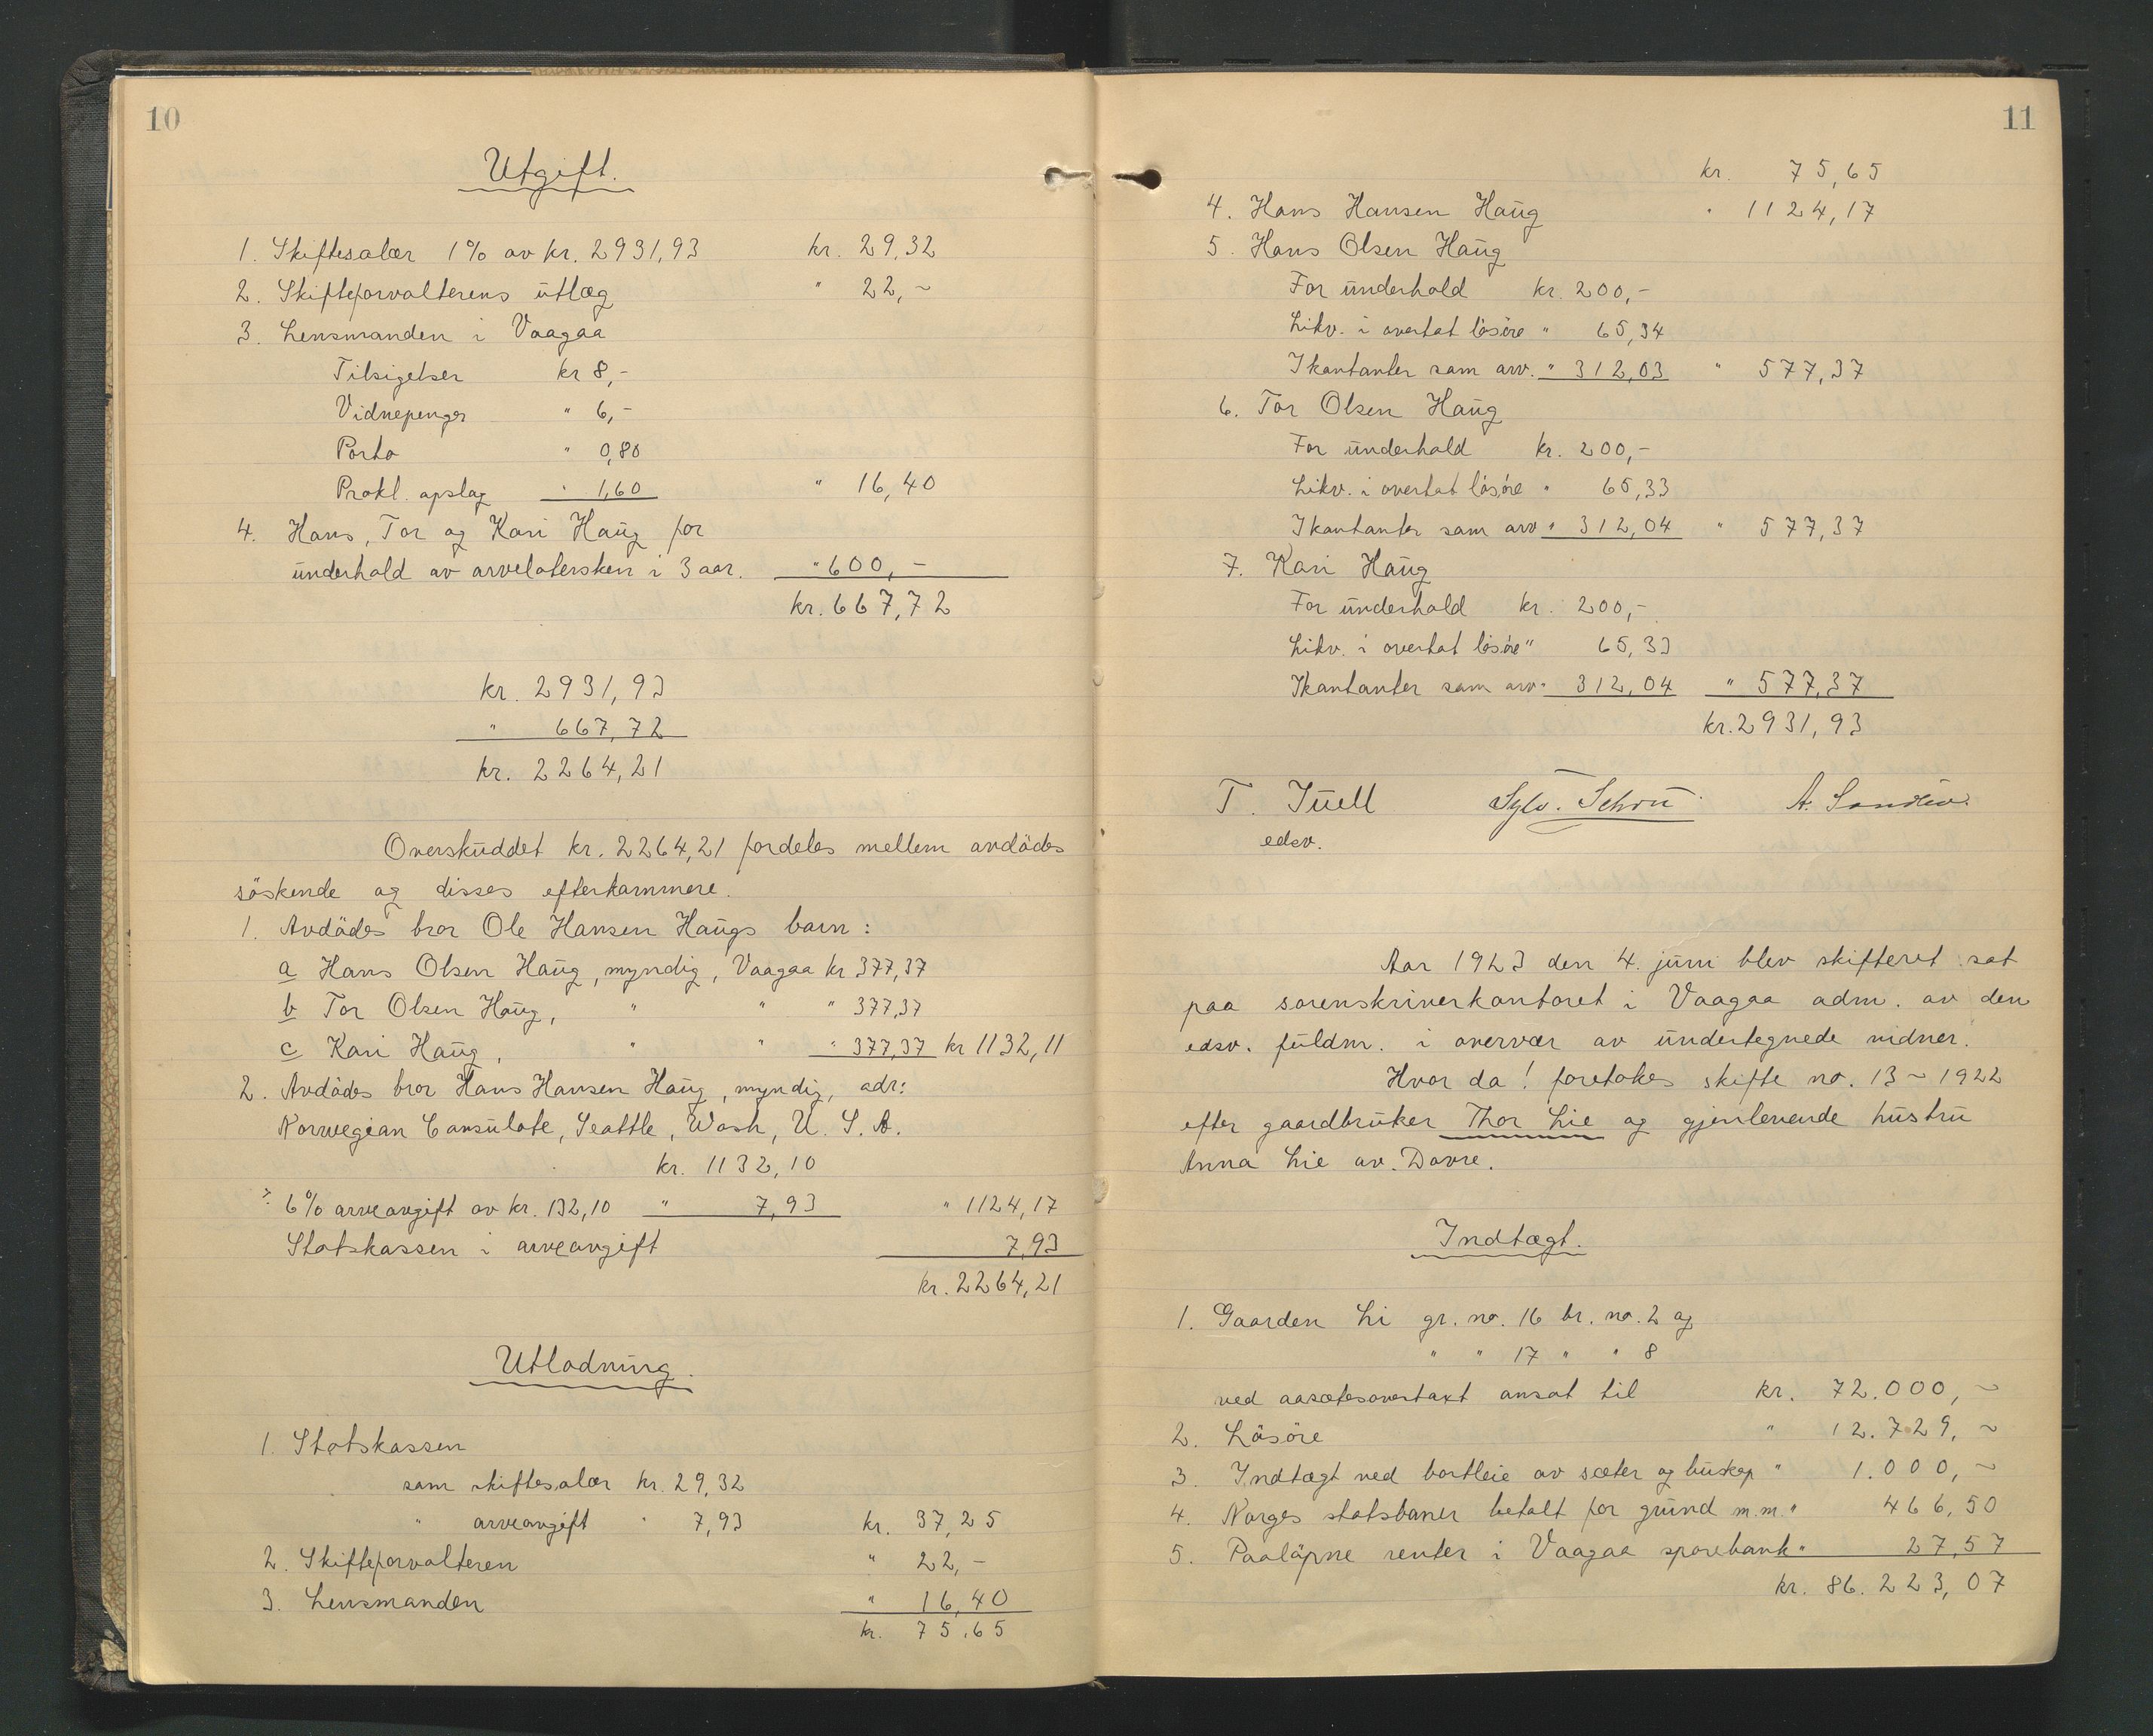 10
Utgift.
1. Skiftesalær 1% av kr. 2931,93 kr. 29,32
2. Skifteforvalterens utlæg " 22,~
3. Lensmanden i Vaagaa
Tilsigelser kr 8,-
Vidnepenger " 6,-
Porto " 0,80
Prokl. opslag " 1,60 " 16,40
4. Hans, Tor og Kari Haug for
underhold av arvelatersken i 3 aar. " 600,-
kr. 667,72
kr. 2931,93
" 667,72
kr. 2264,21
Overskuddet kr. 2264,21 fordeles mellem avdödes
söskende og disses efterkommere.
1. Avdödes bror Ole Hansen Haugs barn:
a Hans Olsen Haug, myndig, Vaagaa kr 377,37
b Tor Olsen Haug, " " " 377,37
c Kari Haug, " " " 377,37 kr 1132,11
2. Avdödes bror Hans Hansen Haug, myndig, adr:
Norwegian Consulate, Seattle, Wash, U. S. A.
kr. 1132,10
÷ 6% arveavgift av kr. 132,10 " 7,93 " 1124,17
Statskassen i arveavgift 7,93
kr. 2264,21
Utlodning.
1. Statskassen
som skiftesalær kr. 29,32
" arveavgift " 7,93 kr. 37,25
2. Skifteforvalteren " 22,-
3. Lensmanden " 16,40
kr. 75,65
11
kr. 75,65
4. Hans Hansen Haug " 1124,17
5. Hans Olsen Haug
For underhold kr. 200,-
Likv. i overtat lösöre " 65,34
I kontanter som arv. " 312,03 " 577,37
6. Tor Olsen Haug
For underhold kr. 200,-
Likv. i overtat lösöre " 65,33
I kontanter som arv " 312,04 " 577,37
7. Kari Haug
For underhold kr. 200,-
Likv. i overtat lösöre " 65,33
I kontanter som arv " 312,04 " 577,37
kr. 2931,93
T. Juell Sylv. Schou A.
edsv.
Aar 1923 den 4. juni blev skifteret sat
paa sorenskriverkontoret i Vaagaa adm. av den
edsv. fuldm. i overvær av undertegnede vidner.
Hvor da! foretokes skifte no. 13~1922
efter gaardbruker Thor Lie og gjenlevende hustru
Anna Lie av Dovre.
Indtægt.
1. Gaarden Li gr. no. 16 br. no. 2 og
" " 17 " " 8
ved aasætesovertaxt ansat til kr. 72.000,~
2. Lösöre " 12.729,~
3. Indtægt ved bortleie av sæter og buskap " 1.000,~
4. Norges statsbaner betalt for grund m.m. " 466,50
5. Paalöpne renter i Vaagaa sparebank " 27,57
kr. 86.223,07